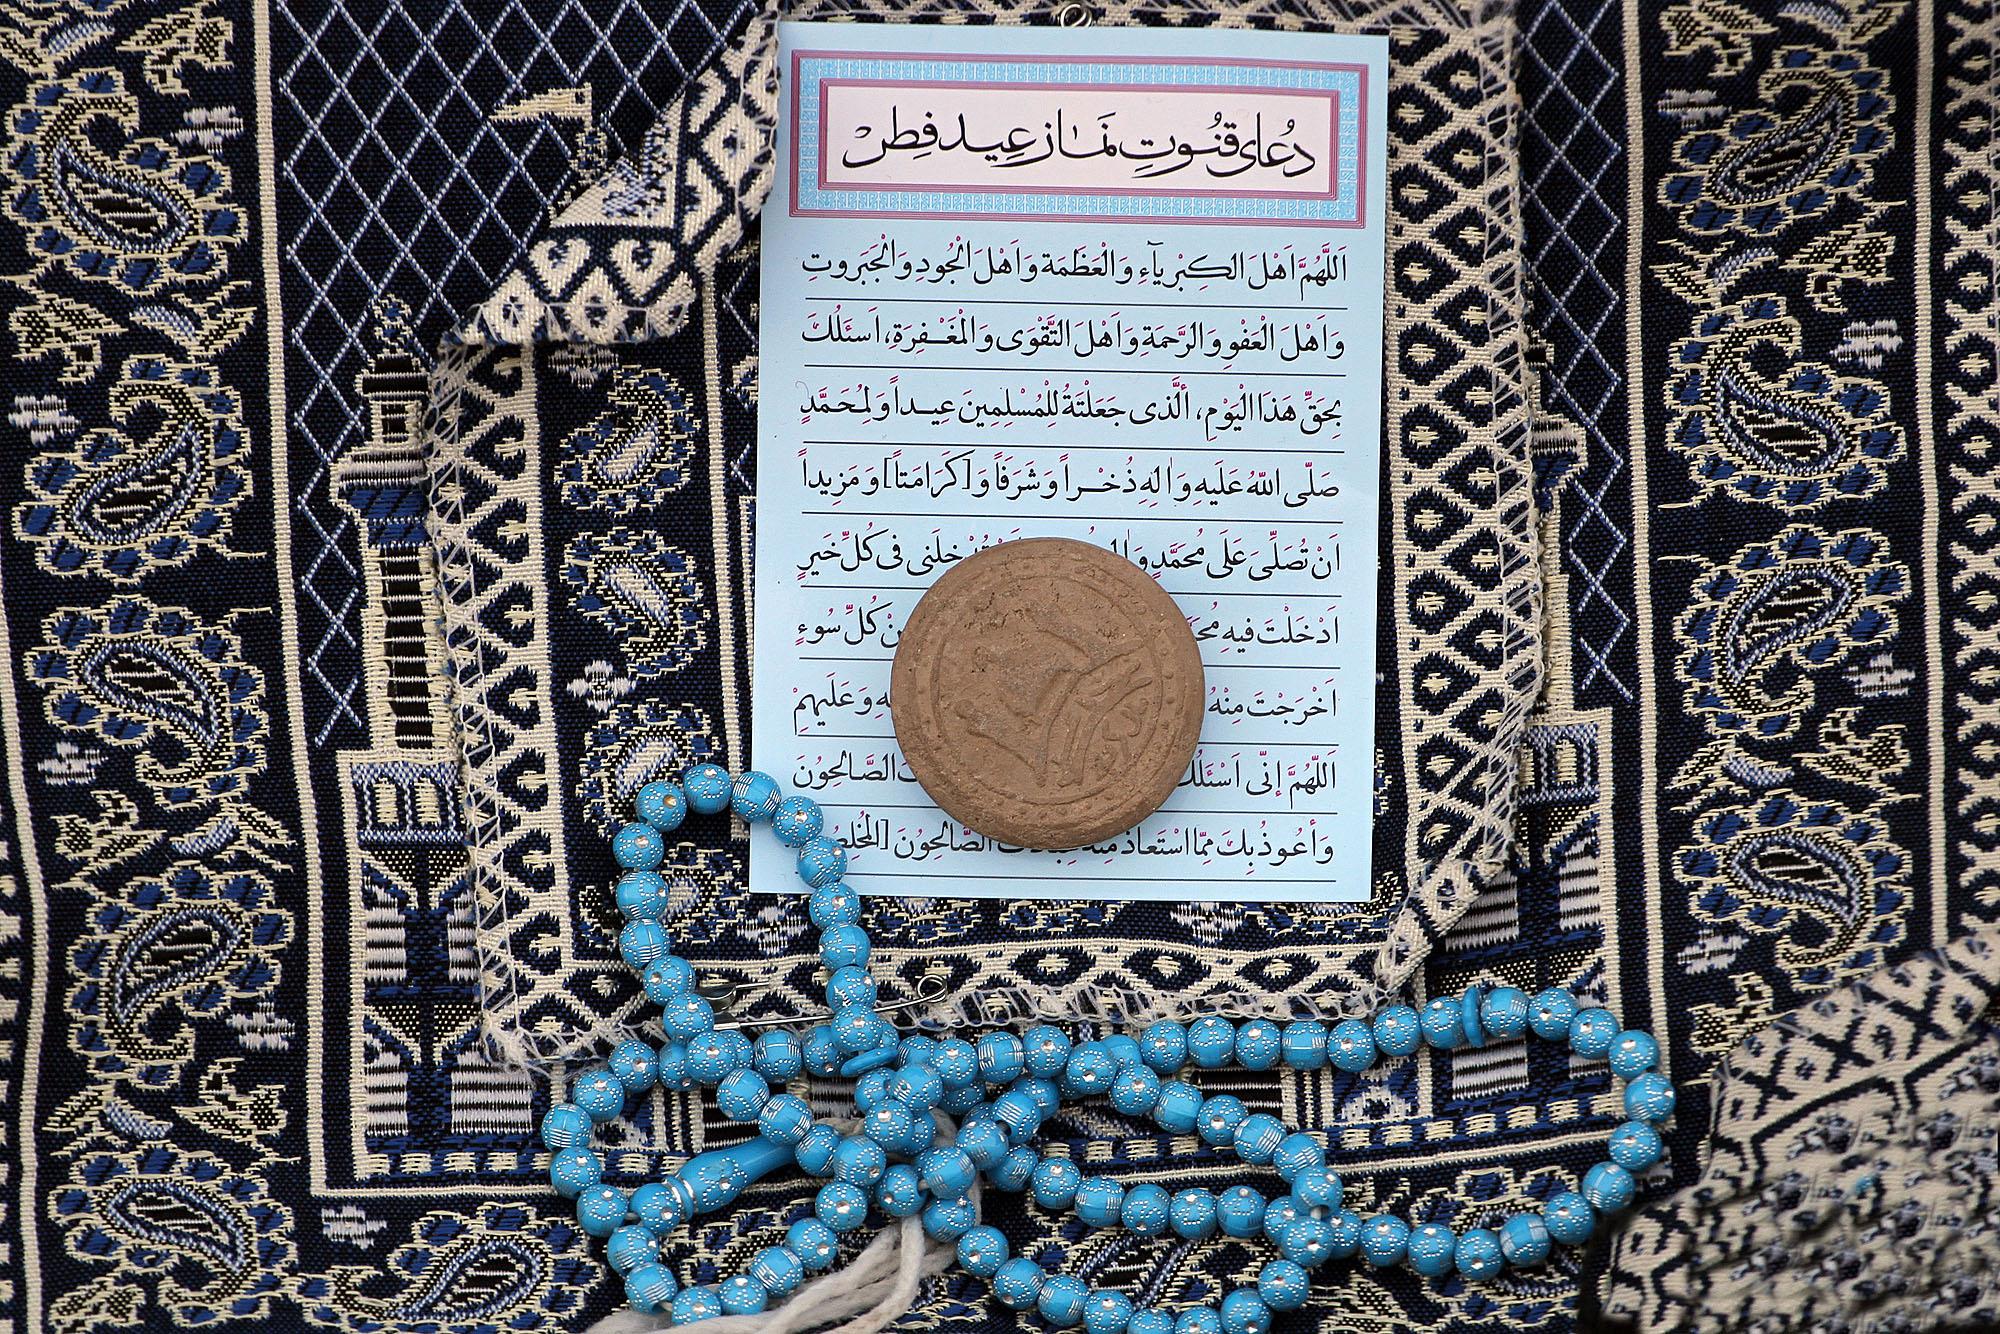 دُعای قنُوتِ نَماز عِید فِطْر
اَللَّهُمَّ اَهْلَ الْكِبْرِيآءِ وَالْعَظَمَةِ وَاَهْلَ الْجُودِ وَالْجَبَرُوتِ
وَاَهْلَ الْعَفْوِ وَالرَّحْمَةِ وَاَهْلَ التَّقْوٰى وَالْمَغْـفِرَةِ، اَسئَلُكَ
بِحَقِّ هَذَا الْيَوْمِ، ألَّذى جَعَلْتَةُ لِلْمُسْلِمِينَ عِيـداً وَ لِمُحَمَّدٍ
صَلّى اللهُ عَلَيهِ وَالِهِ ذُخْـراً وَ شَرَفًا وَ [كَرَامَتاً] وَ مَزِيداً
اَنْ تُصَلِّىَ عَلَى مُحَمَّدٍ خِلَنى فى كُلِّ خَيرٍ
اَدْخَلْتَ فيهِ كُلِّ سُوءٍ
اَخْرَجْتَ مِنْهُ وَ عَلَيهِمْ
اَللّهُمَّ إنّى اَسْئَلُكَ الصَّالِحُونَ
وَأعُوذُ بِكَ مِمّا اسْتَعاذَ مِنْهُ الصَّالِحُونَ